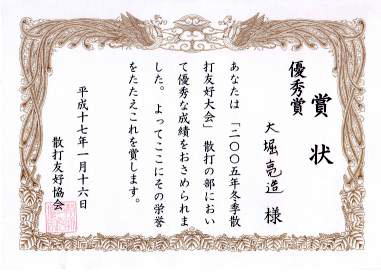 賞状
優秀賞
大堀亮造 様
あなたは「二〇〇五年冬季散
打友好大会」散打の部におい
て優秀な成績をおさめられま
した。よってここにその栄誉
をたたえこれを賞します。
平成十七年一月十六日
散打友好協会